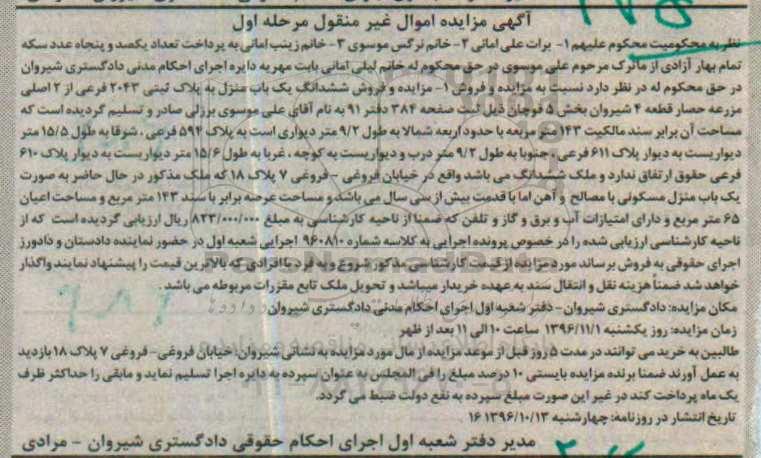 آگهی مزایده اموال غیر منقول مرحله اول
نظر به محکومیت محکوم علیهم ۱- برات علی امانی ۲- خانم نرگس موسوی ۳- خانم زینب امانی به پرداخت تعداد یکصد و پنجاه عدد سکه
تمام بهار آزادی از ماترک مرحوم علی موسوی در حق محکوم له خانم لیلی امانی بابت مهریه دایره اجرای احکام مدنی دادگستری شیروان
در حق محکوم له در نظر دارد نسبت به مزایده و فروش ۱- مزایده و فروش ششدانگ یک باب منزل به پلاک ثبتی ۲۰۴۳ فرعی از ۲ اصلی
مزرعه حصار قطعه ۴ شیروان بخش ۵ قوچان ذیل ثبت صفحه ۳۸۴ دفتر ۹۱ به نام آقای علی موسوی برزلی صادر و تسلیم گردیده است که
مساحت آن برابر سند مالکیت ۱۴۳ متر مربعه با حدود اربعه شمالا به طول ۹/۲ متر دیواری است به پلاک ۵۹۴ فرعی ، شرقا به طول ۱۵/۵ متر
دیواریست به دیوار پلاک ۶۱۱ فرعی ، جنوبا به طول ۹/۲ متر درب و دیواریست به کوچه ، غربا به طول ۱۵/۶ متر دیواریست به دیوار پلاک ۶۱۰
فرعی حقوق ارتفاق ندارد و ملک ششدانگ می باشد واقع در خیابان فروغی - فروغی ۷ پلاک ۱۸ که ملک مذکور در حال حاضر به صورت
یک باب منزل مسکونی با مصالح و آهن اما با قدمت بیش از سی سال می باشد و مساحت عرصه برابر با سند ۱۴۳ متر مربع و مساحت اعیان
۶۵ متر مربع و دارای امتیازات آب و برق و گاز و تلفن که ضمنا از ناحیه کارشناسی به مبلغ ۸۲۳/۰۰۰/۰۰۰ ریال ارزیابی گردیده است که از
ناحیه کارشناسی ارزیابی شده را در خصوص پرونده اجرایی به کلاسه شماره ۹۶۰۸۱۰ اجرایی شعبه اول در حضور نماینده دادستان و دادورز
اجرای حقوقی به فروش برساند مورد مزایده از قیمت کارشناسی مذکور شروع و به فرد یا افرادی که بالاترین قیمت را پیشنهاد نمایند واگذار
خواهد شد ضمناً هزینه نقل و انتقال سند به عهده خریدار میباشد و تحویل ملک تابع مقررات مربوطه می باشد .
مکان مزایده: دادگستری شیروان- دفتر شعبه اول اجرای احکام مدنی دادگستری شیروان
زمان مزایده: روز یکشنبه ۱۳۹۶/۱۱/۱ ساعت ۱۰ الی ۱۱ بعد از ظهر
طالبین به خرید می توانند در مدت ۵ روز قبل از موعد مزایده از مال مورد مزایده به نشانی شیروان، خیابان فروغی- فروغی ۷ پلاک ۱۸ بازدید
به عمل آورند ضمنا برنده مزایده بایستی ۱۰ درصد مبلغ را فی المجلس به عنوان سپرده به دایره اجرا تسلیم نماید و مابقی را حداکثر ظرف
یک ماه پرداخت کند در غیر این صورت مبلغ سپرده به نفع دولت ضبط می گردد.
تاریخ انتشار در روزنامه: چهارشنبه ۱۳۹۶/۱۰/۱۳ ۱۶
مدیر دفتر شعبه اول اجرای احکام حقوقی دادگستری شیروان - مرادی